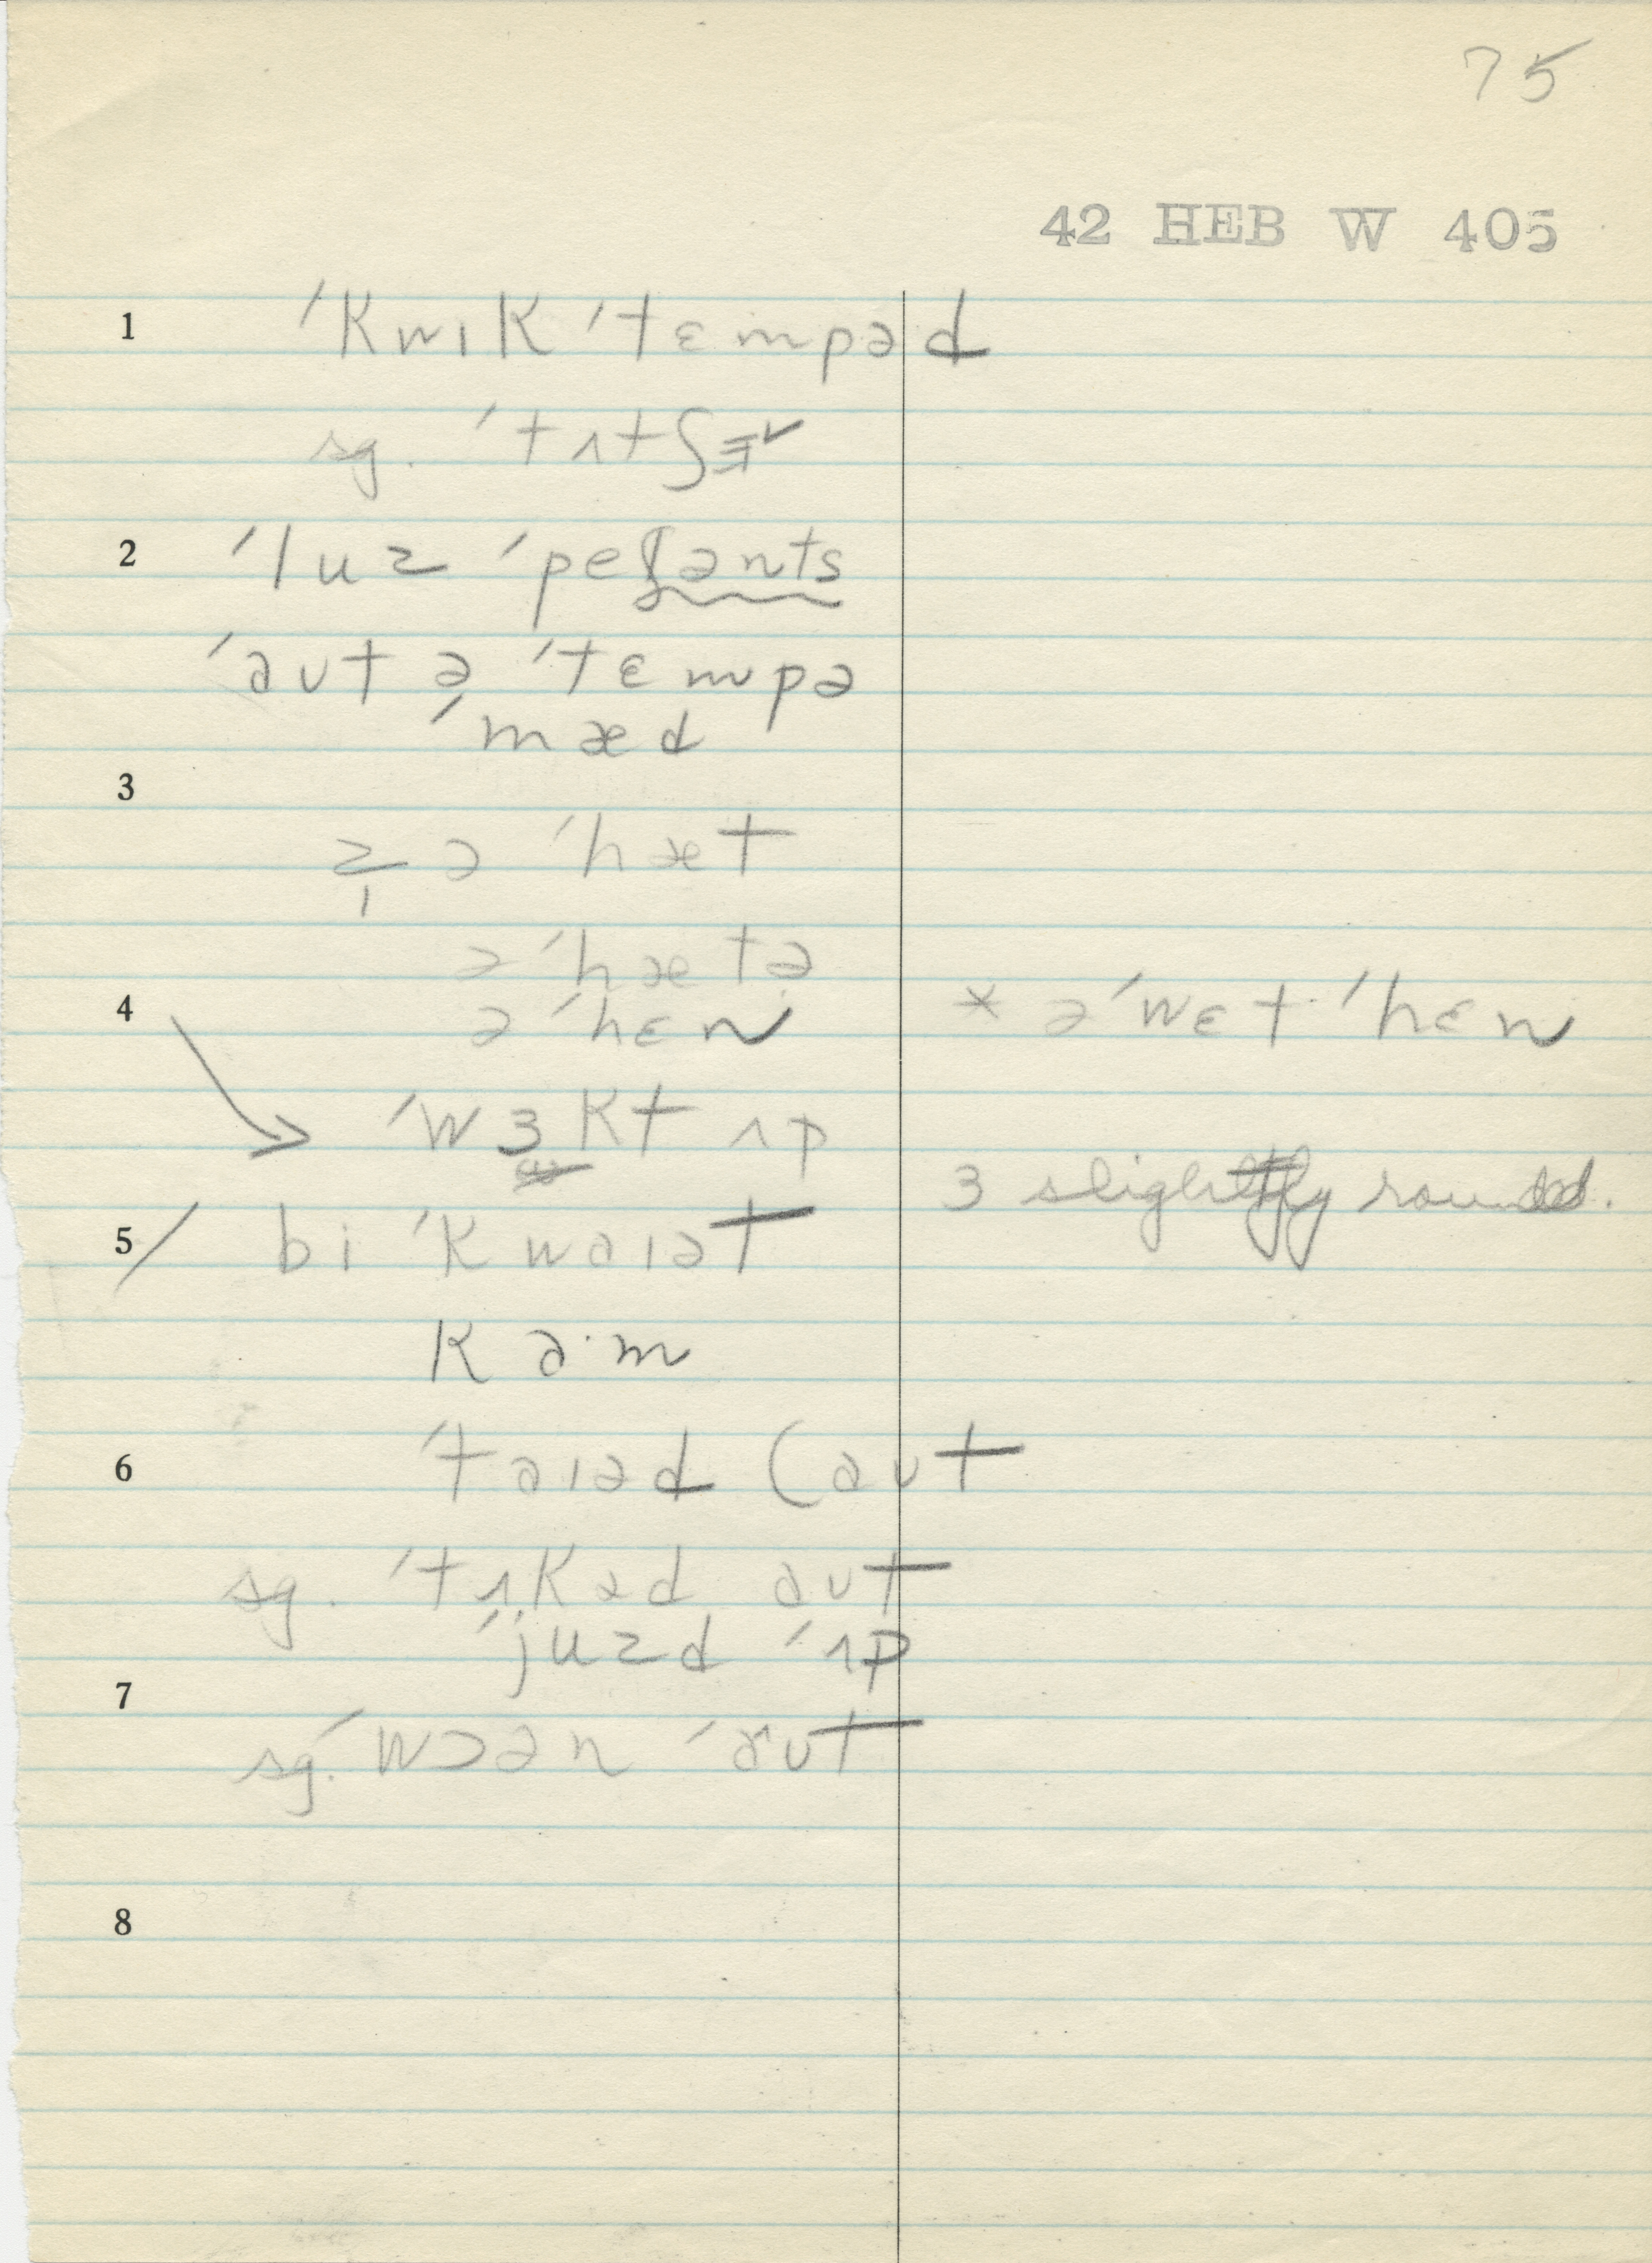 75
42 HEB W 405
1 ˈkwɪk ˈtɛmpəd
sg. ˈtʌtʃɪ̵ ✓
2 ˈluz ˈpeʃənts
ˈaʊt ə ˈtɛmpə
ˈmæd
3
z ə ˈhæt
1
ə ˈhætə
4 ə ˈhɛn * ə ˈwɛt ˈhɛn
→ ˈwɜkt ʌp
ɜ slightly rounded.
5/ bi ˈkwaɪət
ka·m
6 ˈtaɪəd (aʊt
sg. ˈtʌkəd aʊt
ˈjuzd ˈʌp
7
sg. ˈwɔən ˈaʊt
8